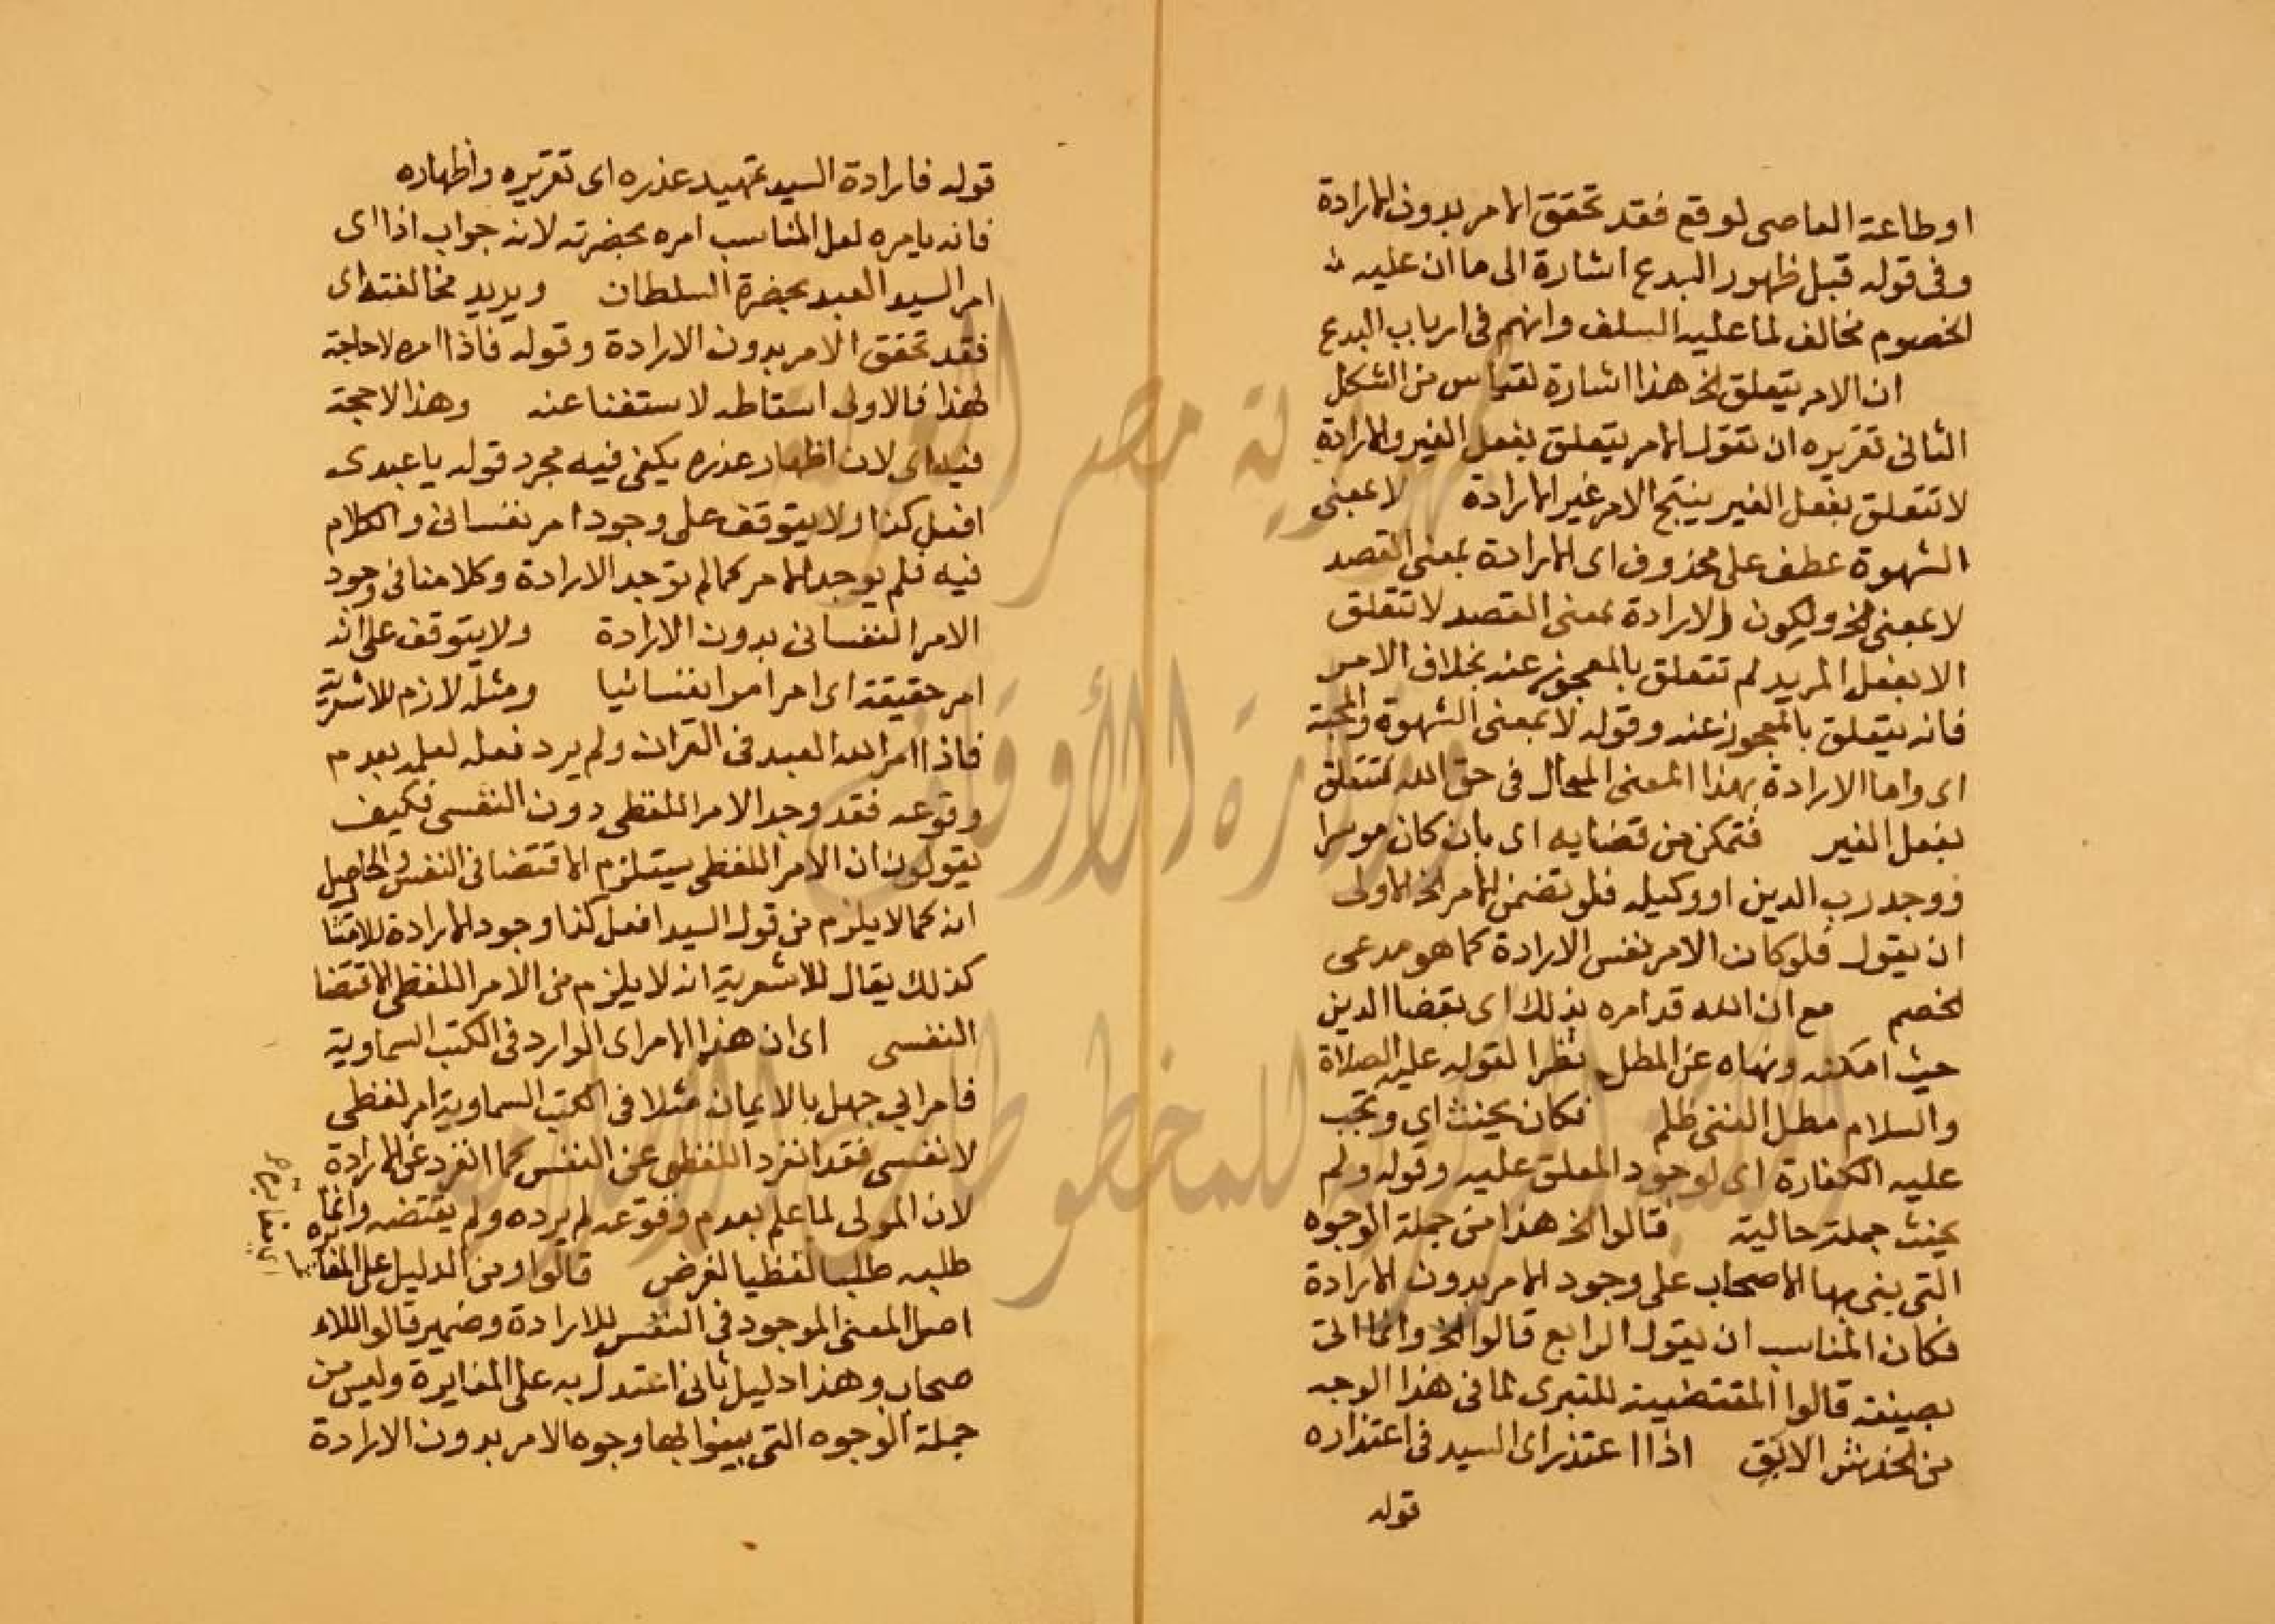 او طاعة العاصى لوقع فقد تحقق الامر بدون الارادة
وفى قوله قبل ظهور البدع اشارة الى ما ان عليه
الخصوم مخالف لما عليه السلف وانهم فى ارباب البدع
ان الامر يتعلق الخ هذا اشارة لقياس من الشكل
الثانى تقريره ان تقول الامر يتعلق بفعل الغير والارادة
لا تتعلق بفعل الغير ينتج الامر غير الارادة لا بمعنى
الشهوة عطف على محذوف اى الارادة بمعنى القصد
لا بمعنى الخ ولكون الارادة بمعنى القصد لا تتعلق
الا بفعل المريد لم تتعلق بالمعجوز عنه بخلاف الامر
فانه يتعلق بالمعجوز عنه وقوله لا بمعنى الشهوة والمحبة
اى واما الارادة بهذا المعنى المحال فى حق الله فتتعلق
بفعل الغير فتمكن من قضايه اى بان كان موسرا
ووجد رب الدين او وكيله فلو تضمن الامر الخ الاولى
ان يقول فلو كان الامر نفس الارادة كما هو مدعى
الخصم مع ان الله قد امره بذلك اى بقضا الدين
حيث امكنه ونهاه عن المطل نظرا لقوله عليه الصلاة
والسلام مطل الغنى ظلم فكان يحنث اي وتجب
عليه الكفارة اى لوجود المعلق عليه وقوله ولم
يحنث جملة حالية قالوا الخ هذا من جملة الوجوه
التى بنى بها الاصحاب على وجود الامر بدون الارادة
فكان المناسب ان يقول الرابع قالوا الخ وانما اتى
بصيغة قالوا المقتضية للتبرى لما فى هذا الوجه
من الخدش الاتى اذا اعتذر اى السيد فى اعتذاره
قوله
قوله فارادة السيد تمهيد عذره اى تقريره واظهاره
فانه يامره لعل المناسب امره بحضرته لانه جواب اذا اى
امر السيد العبد بحضرة السلطان ويريد مخالفته اى
فقد تحقق الامر بدون الارادة وقوله فاذا امره لا حاجة
لهذا فالاولى اسقاطه لاستغنا عنه وهذا لا حجة
فيه اى لان اظهار عذره يكفى فيه مجرد قوله يا عبدى
افعل كذا ولا يتوقف على وجود امر نفسانى والكلام
فيه فلم يوجد الامر كما لم توجد الارادة وكلامنا فى وجود
الامر النفسانى بدون الارادة ولا يتوقف على انه
امر حقيقة اى امر امرا نفسانيا ومثله لازم للاشعرية
فاذا امر الله العبد فى القران ولم يرد فعله لعلمه بعدم
وقوعه فقد وجد الامر اللفظى دون النفسى فكيف
يقولون ان الامر اللفظى يستلزم الاقتضا فى النفس والحاصل
انه كما لا يلزم من قول السيد افعل كذا وجود الارادة للامتثا
كذلك يقال للاشعرية انه لا يلزم من الامر اللفظى الاقتضا
النفسى اى ان هذا الامر اى الوارد فى الكتب السماوية
فامر ابي جهل بالايمان مثلا فى الكتب السماوية امر لفظى
لا نفسى فقد انفرد اللفظى عن النفس كما انفرد عن الارادة
لان المولى لما علم بعدم وقوعه لم يرده ولم يقتضه وانما
طلبه طلبا لفظيا لغرض قالوا ومن الدليل على المغايرة
اصل المعنى الموجود فى النفس للارادة وضمير قالوا للا
صحاب وهذا دليل ثانى استدل به على المغايرة وليس من
جملة الوجوه التى بينوا بها وجوه الامر بدون الارادة
جمهورية مصر العربية
وزارة الأوقاف
المكتبة المركزية للمخطوطات الإسلامية